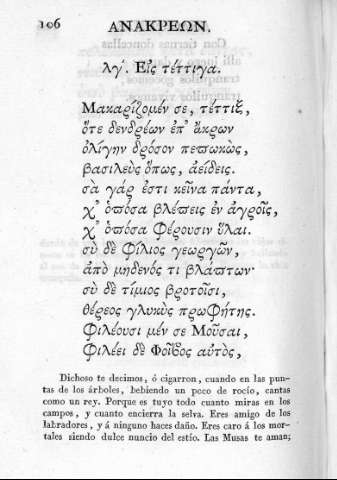 106
ΑΝΑΚΡΕΩΝ.
λγ΄. Εἰς τέττιγα.
Μακαρίζομέν σε, τέττιξ,
ὅτε δενδρέων ἐπ' ἄκρων
ὀλίγην δρόσον πεπωκὼς,
βασιλεὺς ὅπως, ἀείδεις.
σὰ γάρ ἐστι κεῖνα πάντα,
χ' ὁπόσα βλέπεις ἐν ἀγροῖς,
χ' ὁπόσα φέρουσιν ὗλαι.
σὺ δὲ φίλιος γεωργῶν,
ἀπὸ μηδενός τι βλάπτων·
σὺ δὲ τίμιος βροτοῖσι,
θέρεος γλυκὺς προφήτης.
φιλέουσι μέν σε Μοῦσαι,
φιλέει δὲ Φοῖβος αὐτὸς,
Dichoso te decimos, ó cigarron, cuando en las pun-
tas de los árboles, bebiendo un poco de rocío, cantas
como un rey. Porque es tuyo todo cuanto miras en los
campos, y cuanto encierra la selva. Eres amigo de los
labradores, y á ninguno haces daño. Eres caro á los mor-
tales siendo dulce nuncio del estío. Las Musas te aman;